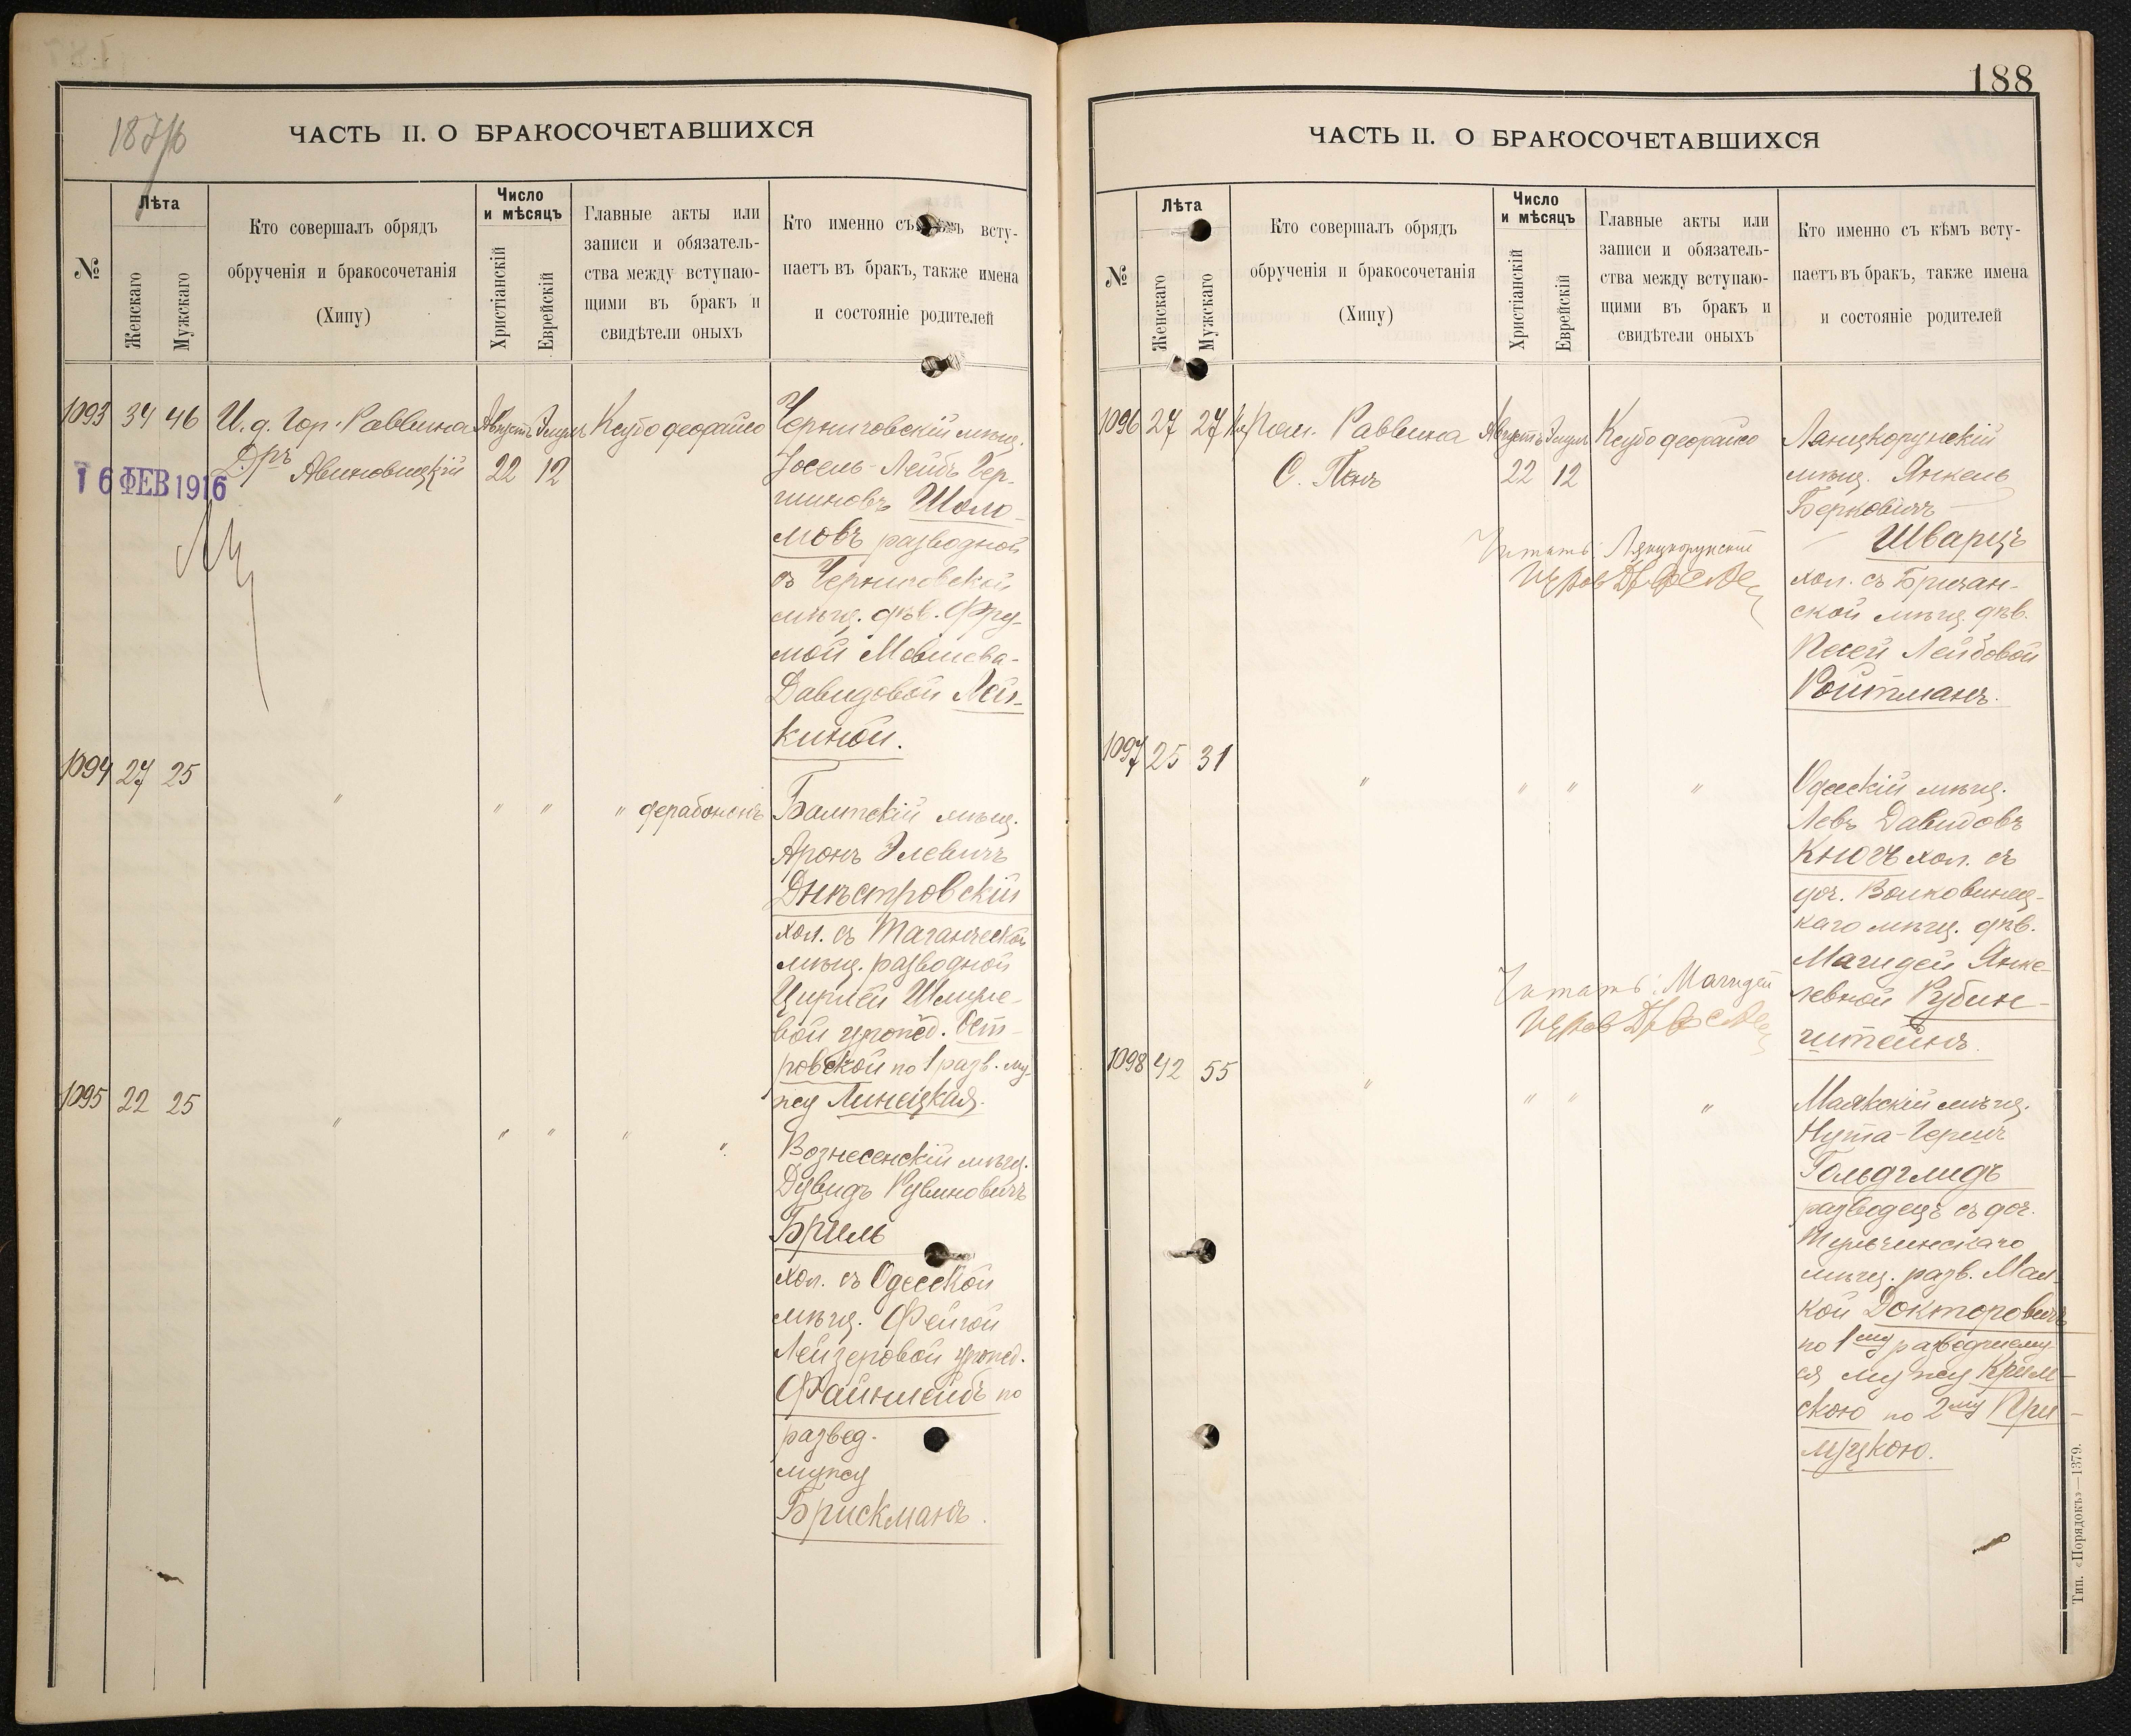 187/6
ЧАСТЬ II. О БРАКОСОЧЕТАВШИХСЯ
№
Лѣта
Женскаго
Мужскаго
Кто совершалъ обрядъ
обрученія и бракосочетанія
(Хипу)
Число
и мѣсяцъ
Христіанскій
Еврейскій
Главные акты или
записи и обязатель-
ства между вступаю-
щими въ бракъ и
свидѣтели оныхъ
Кто именно съ всту-
паетъ въ бракъ, также имена
и состояніе родителей
1093 34 46 И. д. Гор. Раввина Августъ Элулъ Ксубо деорайсо
Д-ръ Авиновицкій 22 12
16 ФЕВ 1916
Черниговскій мѣщ.
Іосель-Лейбъ Гер-
шиновъ Шоло-
мовъ разводной
съ Черниговской
мѣщ. дѣв. Фру-
мой Мовшева-
Давидовой Лей-
киной.
1094 27 25
" " " " дерабононъ
Балтскій мѣщ.
Аронъ Элевичъ
Днѣстровскій
хол. съ Таганческой
мѣщ. разводной
Цирлей Шмуле-
вой урожд. Ост-
ровской по 1 разв. му-
жу Линецкая.
1095 22 25
" " " " "
Вознесенскій мѣщ.
Дувидъ Рувиновичъ
Бриль
хол. съ Одесской
мѣщ. Фейгой
Лейзеровой урожд.
Файнлейбъ по
развед.
мужу
Брискманъ.
188
ЧАСТЬ II. О БРАКОСОЧЕТАВШИХСЯ
№
Лѣта
Женскаго
Мужскаго
Кто совершалъ обрядъ
обрученія и бракосочетанія
(Хипу)
Число
и мѣсяцъ
Христіанскій
Еврейскій
Главные акты или
записи и обязатель-
ства между вступаю-
щими въ бракъ и
свидѣтели оныхъ
Кто именно съ кѣмъ всту-
паетъ въ бракъ, также имена
и состояніе родителей
1096 27 27 Пом. Раввина Августъ Элулъ Ксубо деорайсо
С. Пенъ 22 12
Ланцкорунскій
мѣщ. Янкель
Берковичъ
Шварцъ
хол. съ Бричан-
ской мѣщ. дѣв.
Песей Лейбовой
Ройтманъ.
Читать: Лянцкорунскій
1097 25 31
" " " "
Одесскій мѣщ.
Левъ Давидовъ
Кногъ хол. съ
доч. Волковинец-
каго мѣщ. дѣв.
Магидей Янке-
левной Рубин-
штейнъ.
Читать: Магидей
1098 42 55
" " " "
Маякскій мѣщ.
Нута-Герш
Гольдглидъ
разводецъ съ доч.
Тульчинскаго
мѣщ. разв. Мал-
кой Докторовичъ
по 1му разведшему-
ся мужу Крим-
скою по 2му При-
луцкою.
Тип. «Порядокъ»—1379.